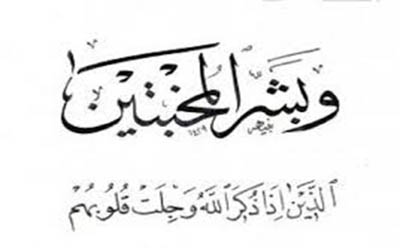 وَبَشِّرِ الْمُخْبِتِينَ
الَّذِينَ إِذَا ذُكِرَ اللَّهُ وَجِلَتْ قُلُوبُهُمْ